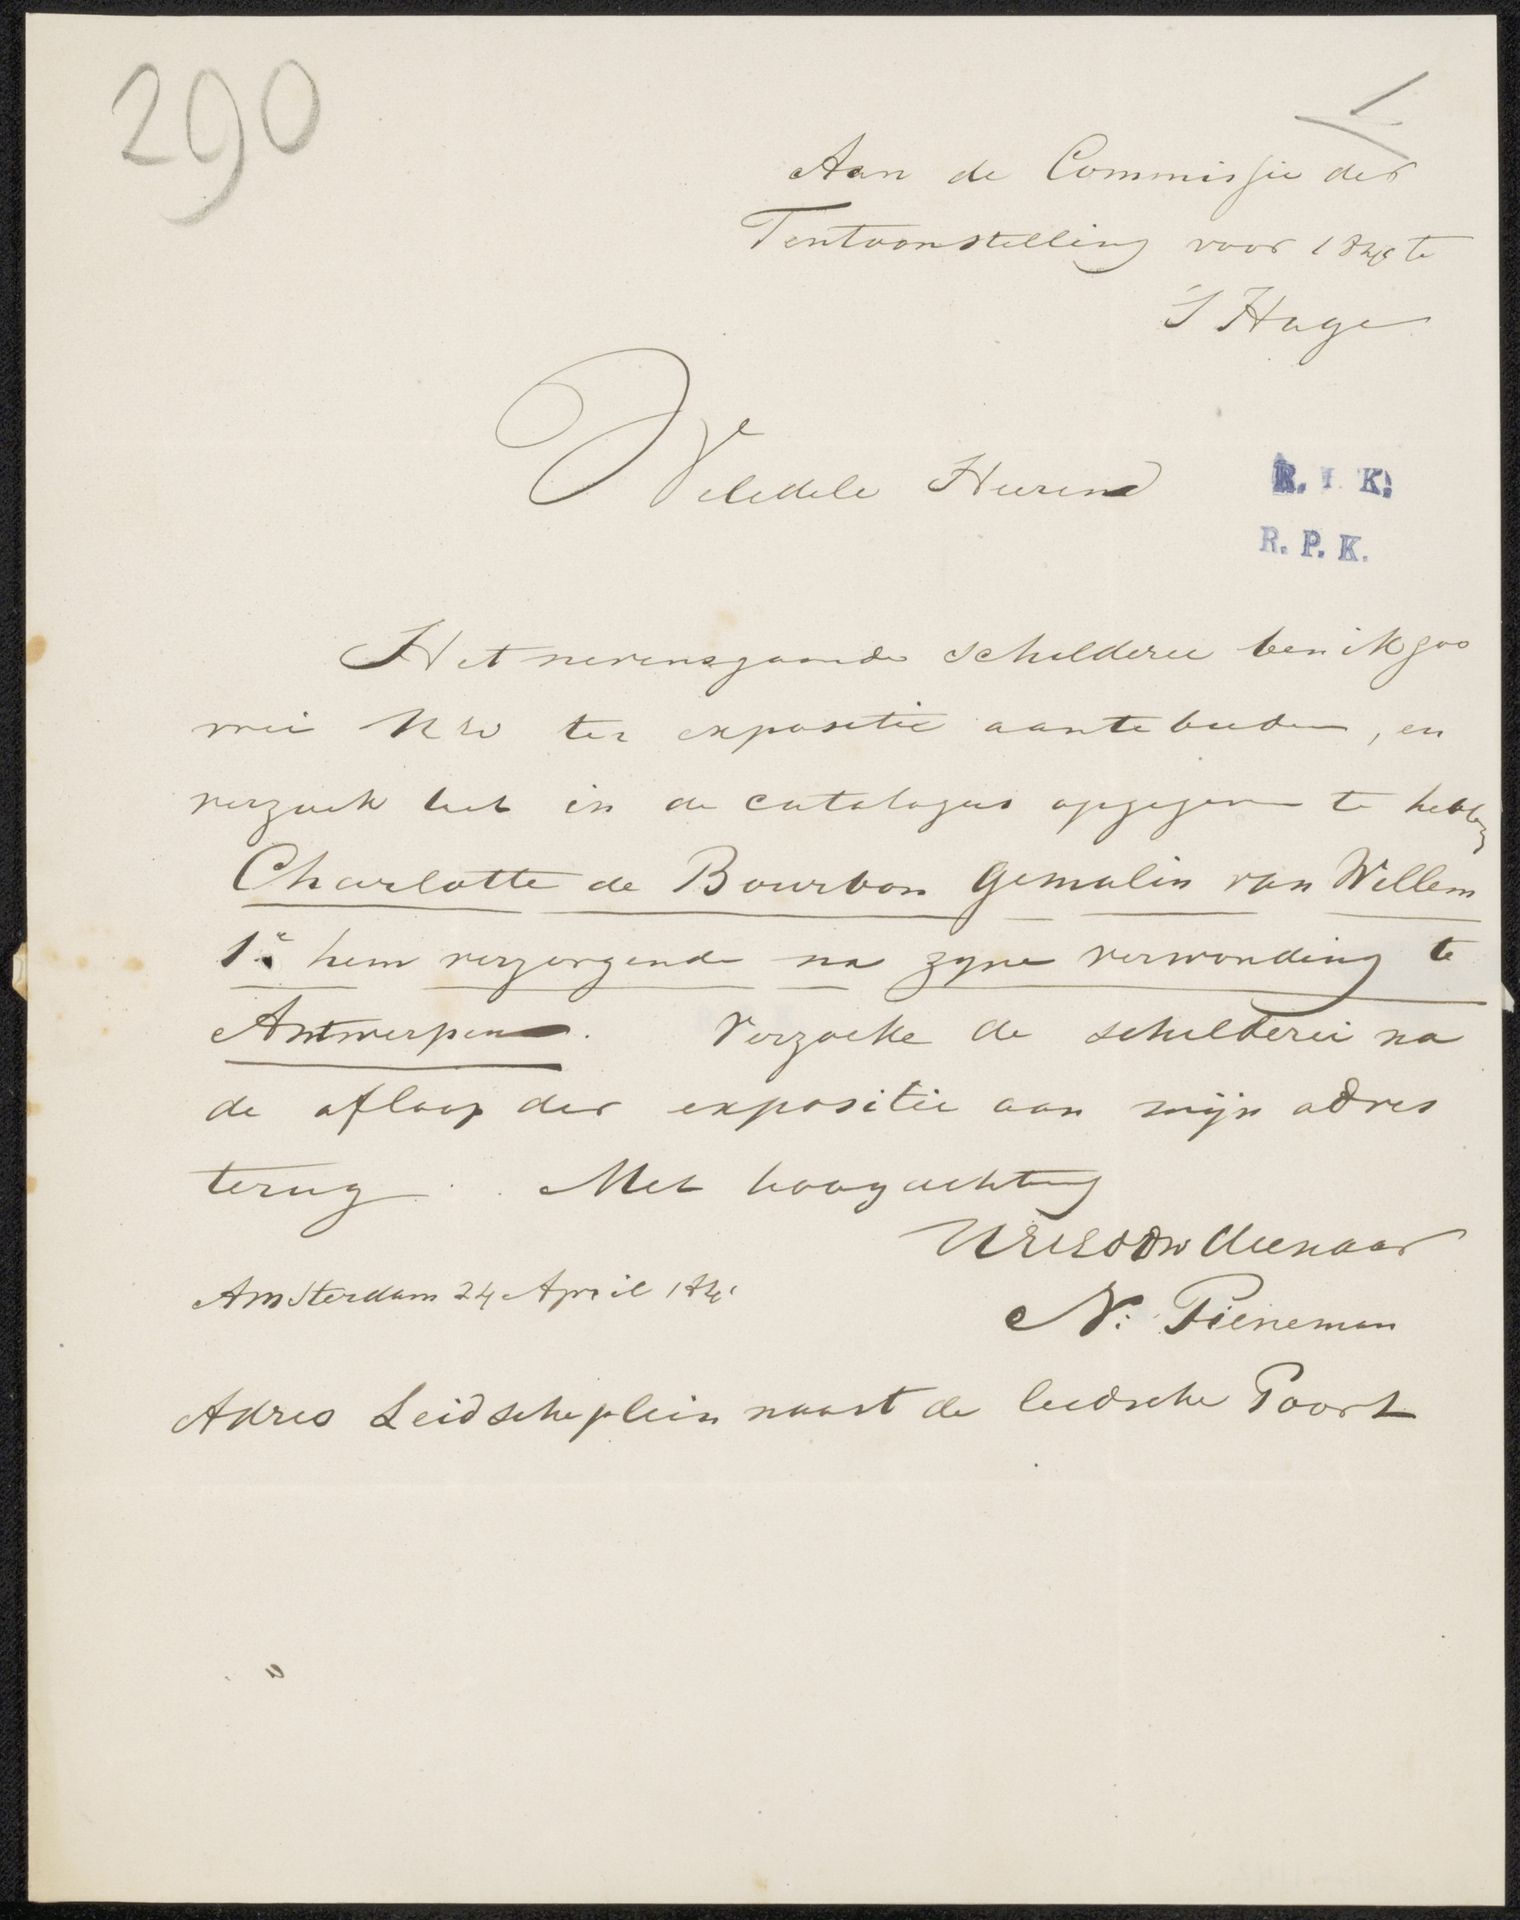 290
1
Aan de Commissie der
Tentoonstelling voor 184 te
S Hage
WelEdele Heeren
R. P. K.
R. P. K.
Het nevensgaande schilderei ben ik zoo
vrei UEd ter expositie aantebieden, en
verzoek het in de catalogus opgegeven te hebben
Charlotte de Bourbon Gemalin van Willem
1e hem verzorgende na zyne verwonding te
Antwerpen. Verzoeke de schilderei na
de afloop der expositie aan mijn adres
terug. Met hoogachting
Dienaar
Amsterdam 24 April
N: Pieneman
Adres Leidscheplein naast de leidsche Poort